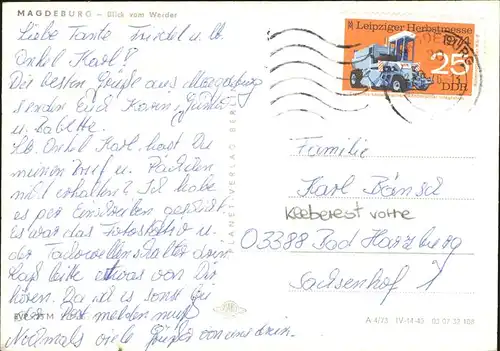 MAGDEBURG – Blick vom Werder
Liebe Tante Friedel u. lb.
Onkel Karl!
Die besten Grüße aus Magdeburg
senden Euch Karin, Günter
u. Babette.
Lb. Onkel Karl, hast Du
meinen Brief u. Päckchen
nicht erhalten? Ich habe
es per Einschreiben geschickt
es war das u.
der drin.
Laß bitte etwas von Dir
hören. Da ich es sonst bei
der Post melden muß
Nochmals viele Grüße von uns drein.
PLANET-VERLAG BER
Leipziger Herbstmesse
1974
25
DDR
Familie
Karl Bänsch
Kleberest vorne
03388 Bad Harzburg
Sachsenhof 1
A 4/73 IV-14-45 03 07 33 108